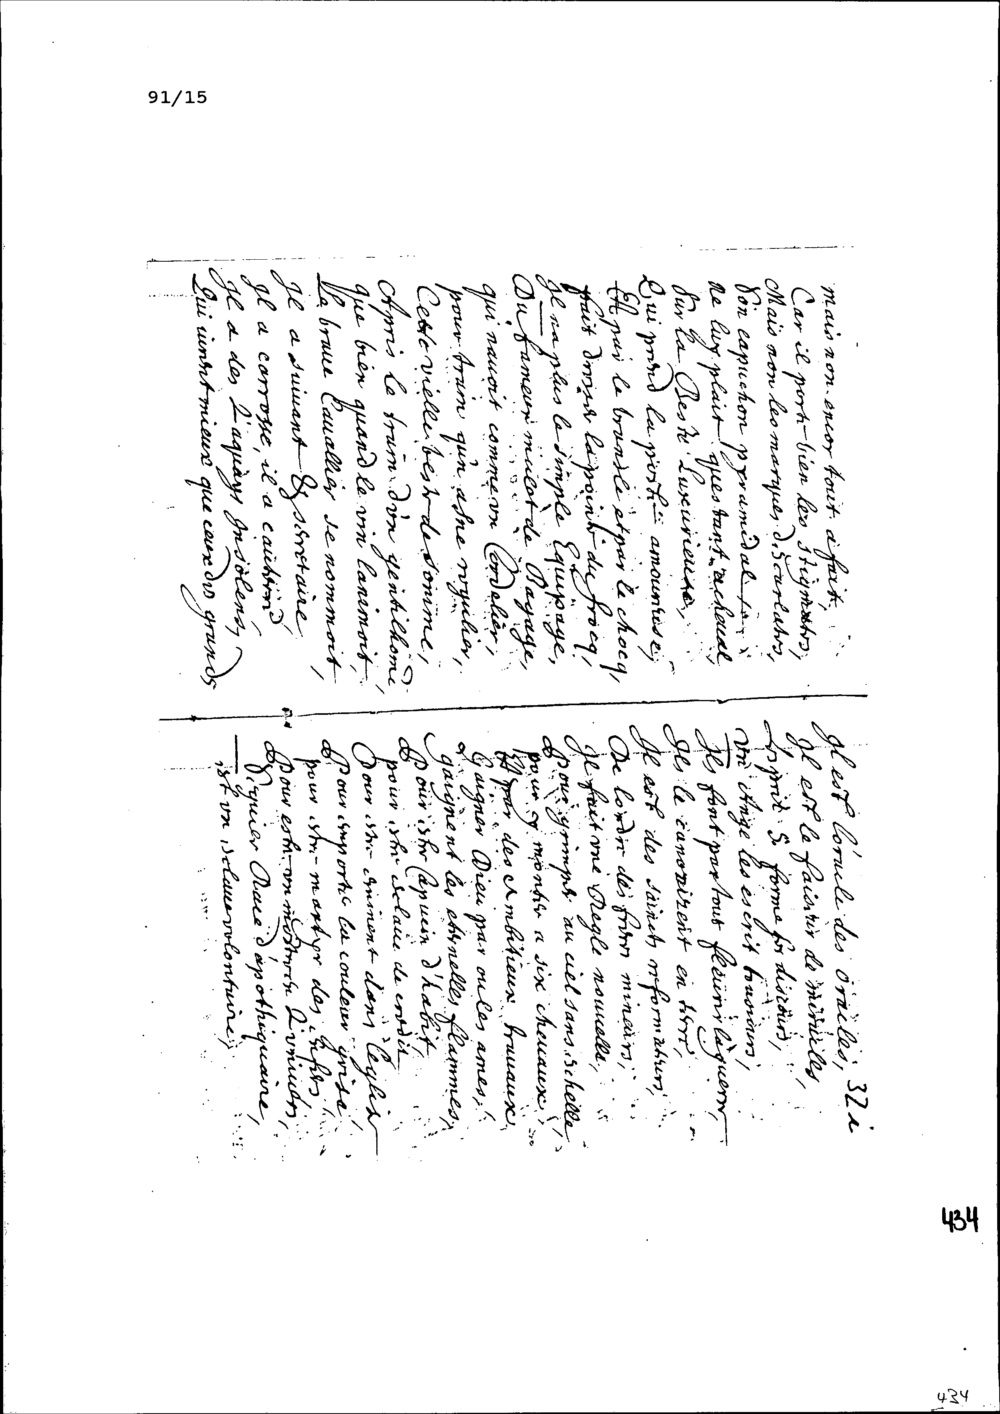 91/15
mais non encor tout a fait,
Car il porte bien les stigmates,
Mais non les marques d'scarlates,
Son capuchon pyramidal
Ne luy plait questant a cheual
Sur la Beste Luxurieuse,
Qui prend la posture amoureuse,
Et par le branle et par le chocq,
fait dresser la pointe du frocq,
Il n'a plus le simple Equipage,
Du fameux mulot de Bagage,
qui nauoit comme un Cordelier,
pour train qu'un asne regulier,
Cette vielle beste de somme,
Apres le train d'un gentilhome,
que bien quand le vin lanimoit,
Le braue Cauallier se nommoit,
Il a suiuant & secretaire
Il a carrosse, il a
Il a des Laquays Insolens,
Qui iurent mieux que ceux des grands
Il est l'oracle des oracles, 321
Il est le faiseur de miracles
L'esprit S. forme ses discours,
Un Ange les escrit tousiours,
Ils font partout fleurir la guerre,
Ils le canonisent en terre,
Il est des saincts reformateurs,
De lordre des freres mineurs,
Il fait une Regle nouuelle,
Pour grimper au ciel sans eschelle
pour y monter a six cheuaux,
Et par des ambitieux trauaux,
Gaigner Dieu par ou les ames,
gaignent les eternelles flammes,
Pour estre Capucin d'habit
pour estre esclaue de credit
Pour estre eminent dans l'eglise
Pour emporter la couleur grise,
pour estre martyr des enfers,
Pour estre un monstre
Race d'apothiquaire,
est un esclaue volontaire,
434
434